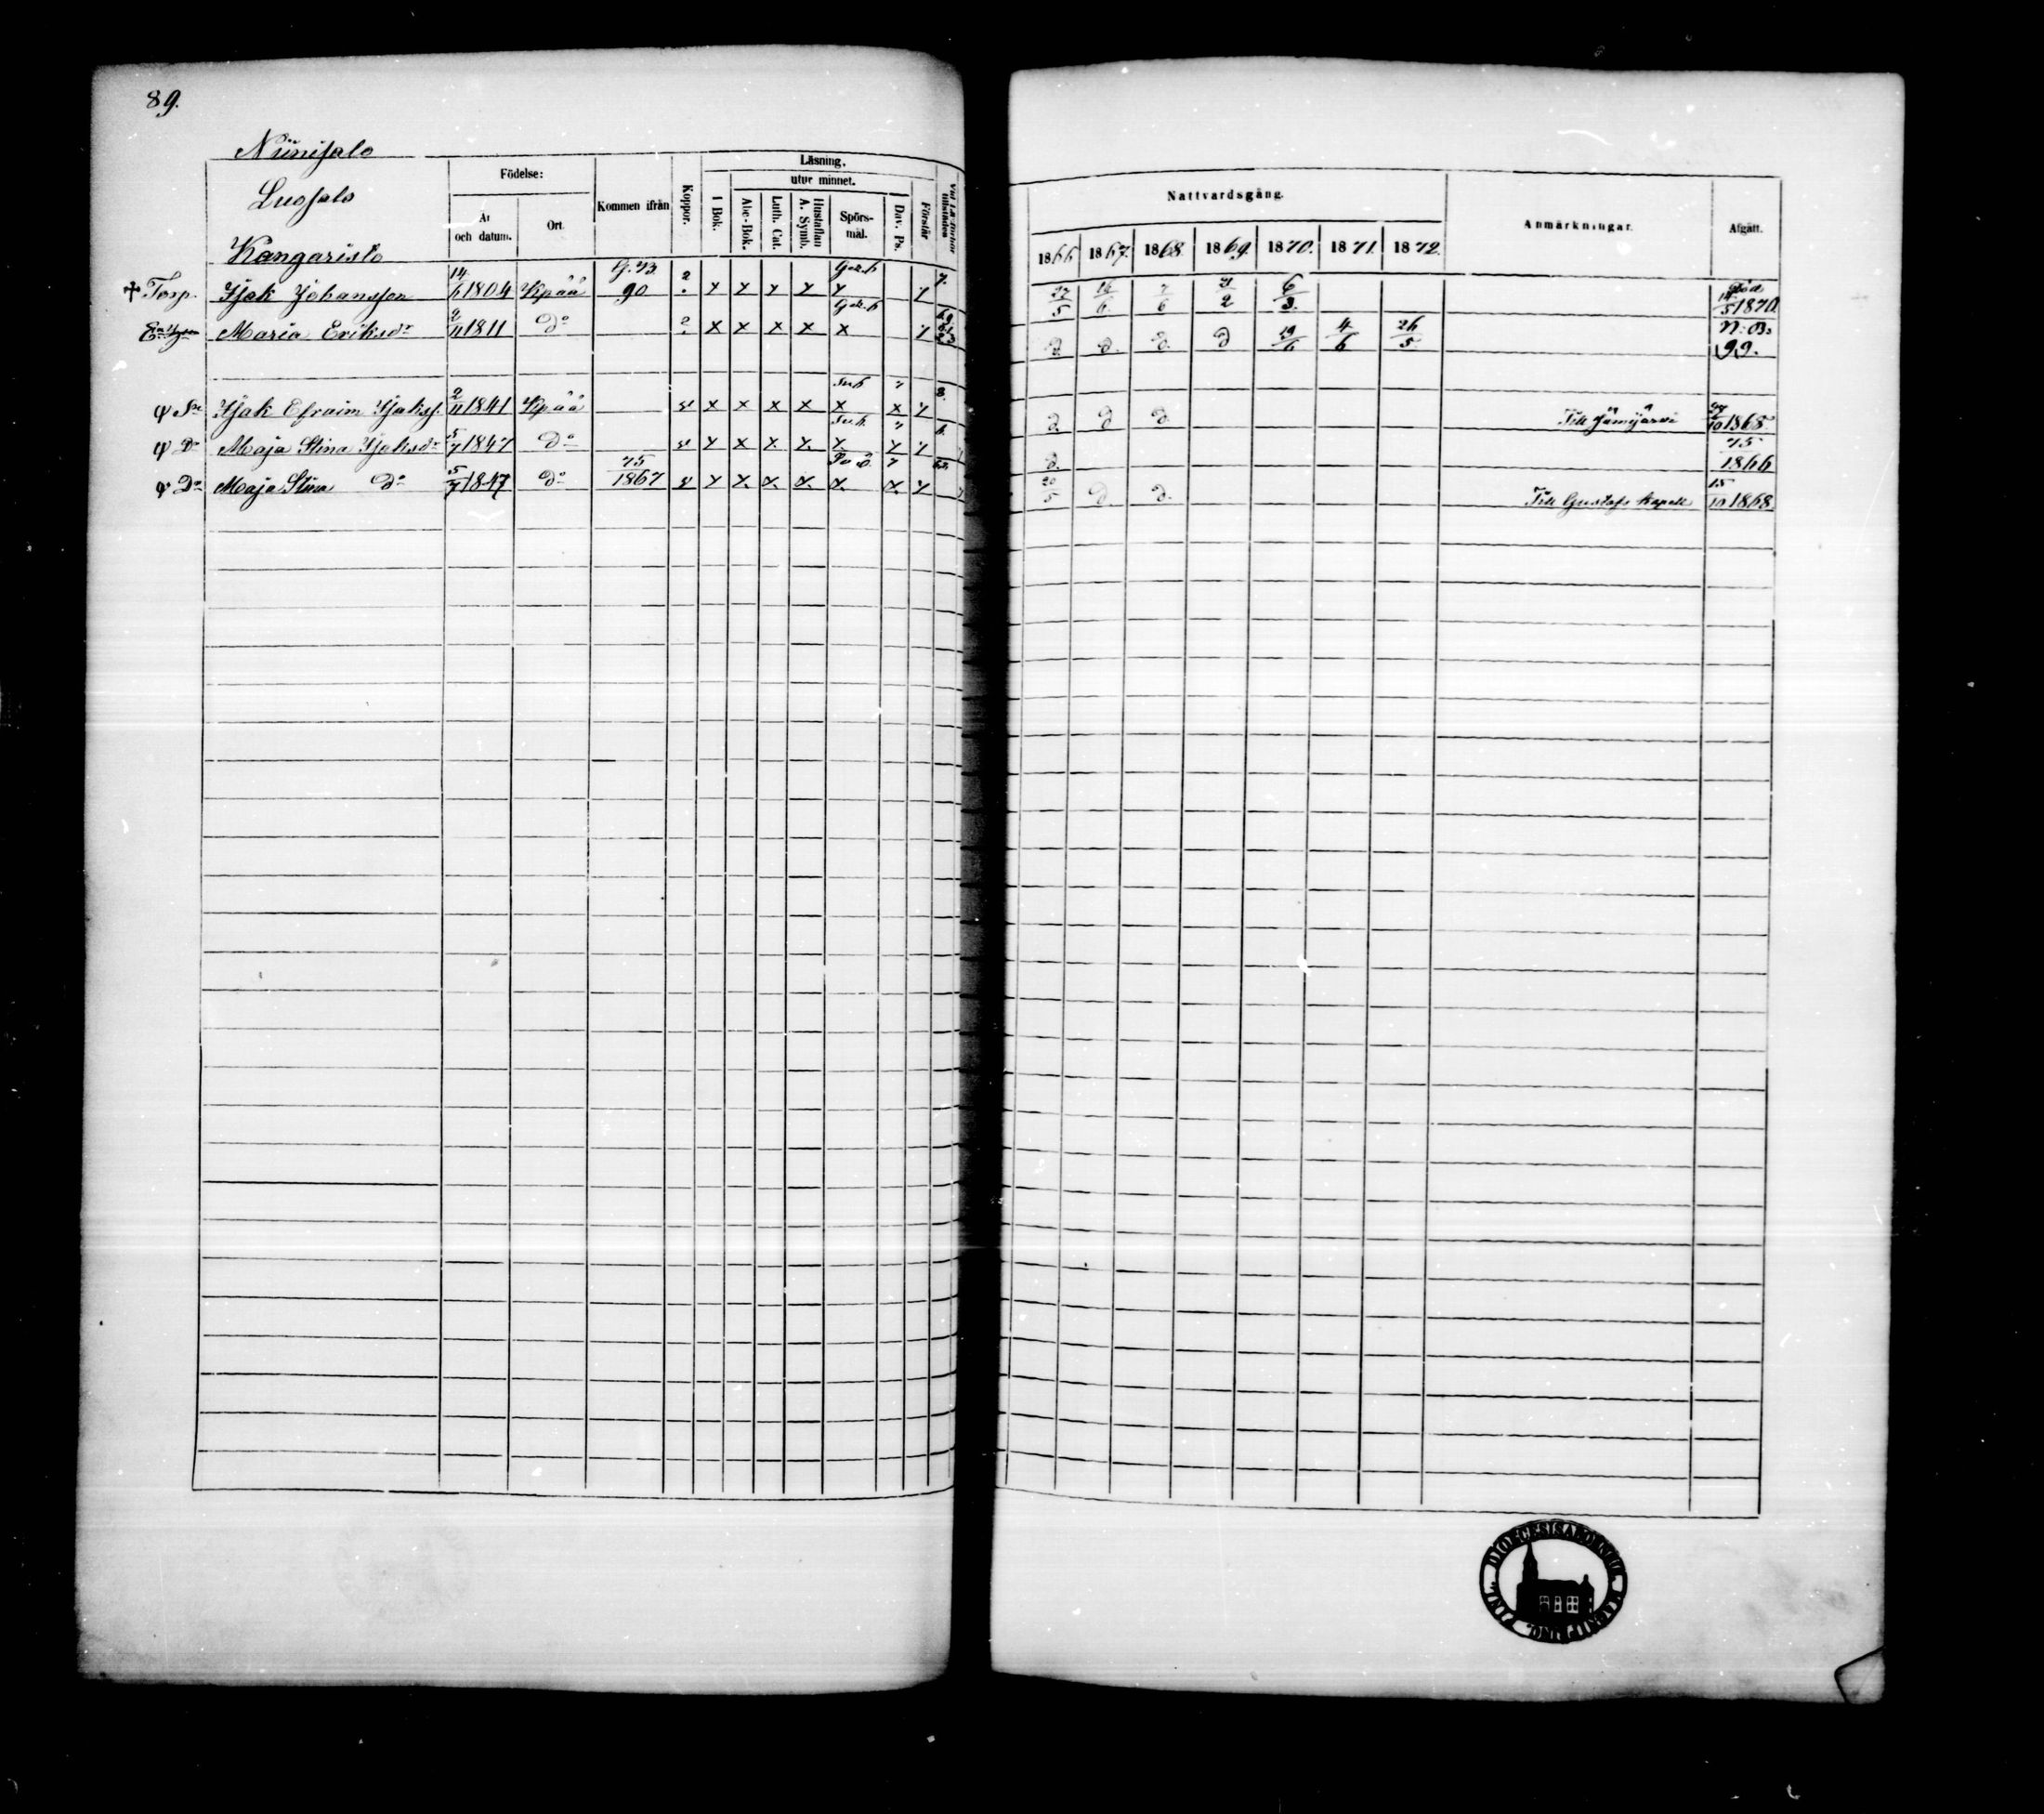 89.
Niinisalo
Luosalo
Kangaristo
Födelse:
År och datum.
Ort.
Kommen ifrån
Koppor.
Läsning.
utur minnet.
I Bok.
Abc-Bok.
Luth. Cat.
Hustaflan A. Symb.
Spörsmål.
Dav. Ps.
Förstår
Nattvardsgång.
1866 1867. 1868. 1869. 1870. 1871. 1872.
Anmärkningar.
Afgått.
† Torp. Isak Johansson 14/6 1804 Kpää G. B. 90 ? x x x x x 7 27/5 16/6. 7/6 21/2 6/3. Död 14/5 1870.
Maria Eriksdr 2/11 1811 Do ? x x x x x d. d. d. d 19/6 4/6 26/5 N: B. 99.
ψ Sn Isak Efraim Isakss. 2/11 1841 Kpää v x x x x x x d. d d. Till Jämijärvi 27/10 1868.
ψ Dr Maja Stina Isaksdr 5/7 1847 Do v x x x x x x d. 75 1866
ψ Dr Maja Stina Do 5/7 1847 Do 75 1867 v x x x x x x 20/5 d. d. Till Gustafs Kapell 15/10 1868.